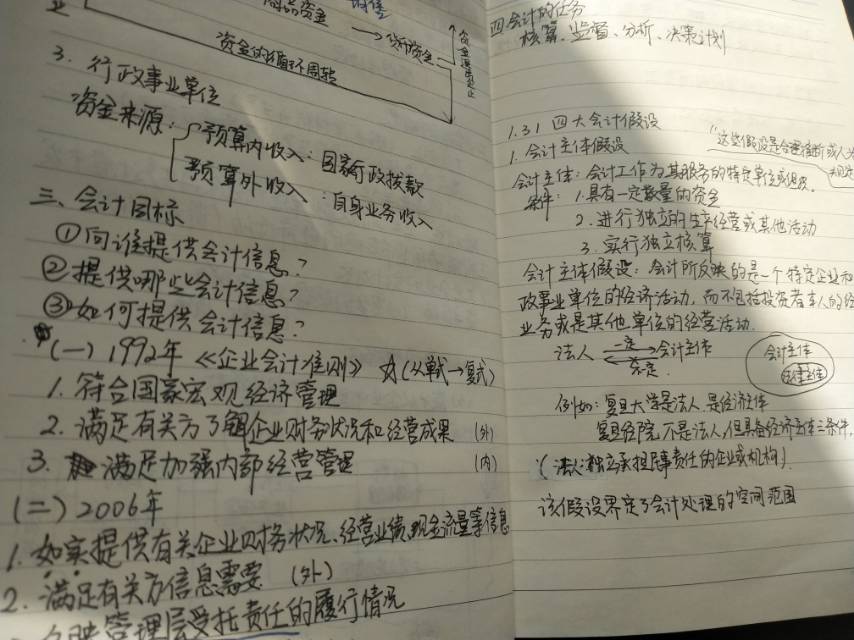 商品资金
→ 货币资金
资金的循环周转
3. 行政事业单位
资金来源:
预算内收入:国家行政拨款
预算外收入:自身业务收入
三、会计目标
①向谁提供会计信息?
②提供哪些会计信息?
③如何提供会计信息?
(一)1992年《企业会计准则》☆(从单式→复式)
1. 符合国家宏观经济管理
2. 满足有关方了解企业财务状况和经营成果 (外)
3. 满足加强内部经营管理 (内)
(二)2006年
1. 如实提供有关企业财务状况、经营业绩、现金流量等信息
2. 满足有关方信息需要 (外)
管理层受托责任的履行情况
四会计的任务
核算、监督、分析、决策计划
1.31 四大会计假设
"这些假设是合理推断或人为
1. 会计主体假设
会计主体:会计工作为其服务的特定单位或组织.
条件:1. 具有一定数量的资金
2. 进行独立的生产经营或其他活动
3. 实行独立核算
会计主体假设:会计所反映的是一个特定企业和
政事业单位的经济活动,而不包括投资者本人的经
业务或是其他单位的经营活动.
法人 一定 会计主体
不定
会计主体
法律主体
例如:复旦大学是法人,是经济主体
复旦经院不是法人,但具备经济主体三条件,
(法人:独立承担民事责任的企业或机构).
该假设界定了会计处理的空间范围